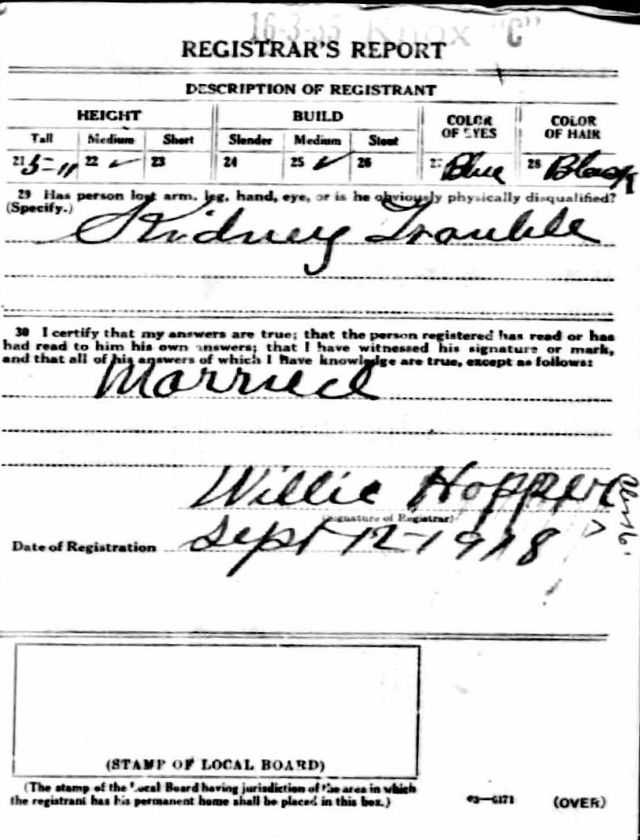 16-3-35 Knox "C"
REGISTRAR'S REPORT
DESCRIPTION OF REGISTRANT
HEIGHT BUILD COLOR OF EYES COLOR OF HAIR
Tall Medium Short Slender Medium Stout
21 5-11 22 ✓ 23 24 25 ✓ 26 27 Blue 28 Black
29 Has person lost arm, leg, hand, eye, or is he obviously physically disqualified?
(Specify.)
Kidney Trouble
30 I certify that my answers are true; that the person registered has read or has
had read to him his own answers; that I have witnessed his signature or mark,
and that all of his answers of which I have knowledge are true, except as follows:
Married
Willie Hopper
(Signature of Registrar)
Date of Registration Sept 12-1918
(STAMP OF LOCAL BOARD)
(The stamp of the Local Board having jurisdiction of the area in which
the registrant has his permanent home shall be placed in this box.)
03—6171 (OVER)